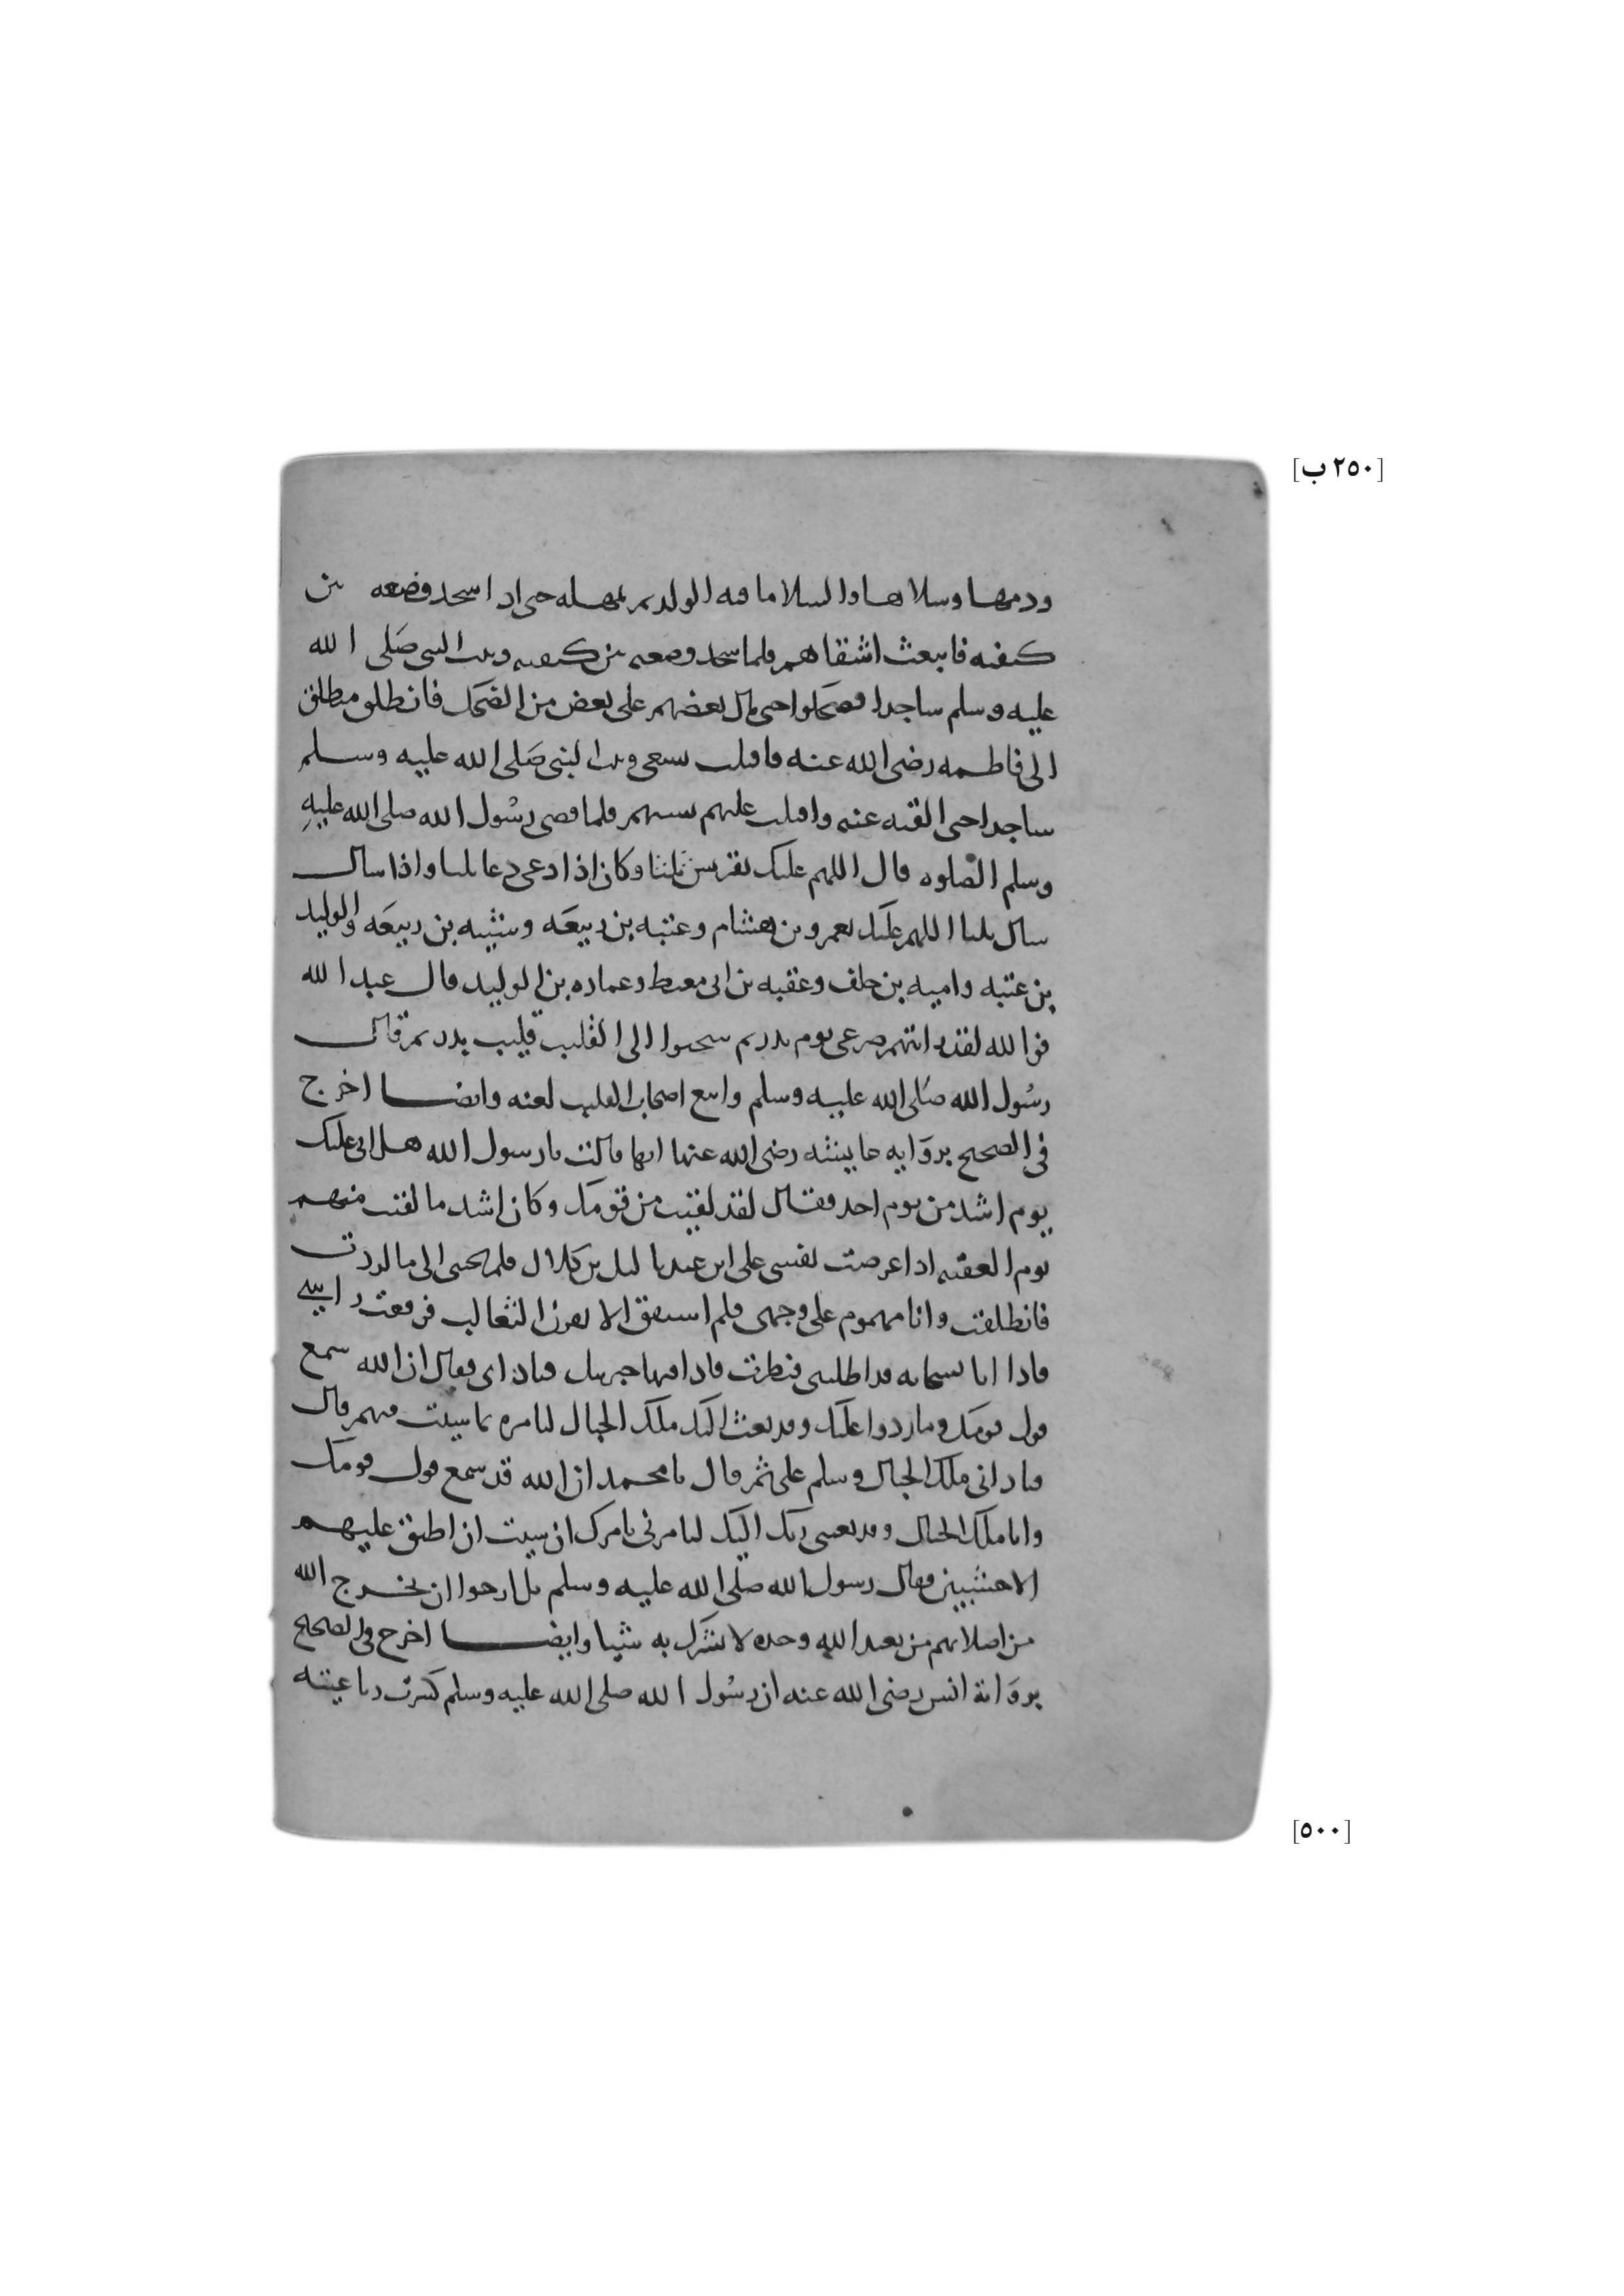 [٢٥٠ ب]
ودمها وسلاها والسلا ما فيه الولد ثم يمهله حتى اذا سجد وضعه بين
كتفيه فانبعث اشقاهم فلما سجد وضعه بين كتفيه وثبت النبي صلى الله
عليه وسلم ساجدا فضحكوا حتى مال بعضهم على بعض من الضحك فانطلق منطلق
الى فاطمه رضى الله عنه فاقبلت تسعى وثبت النبى صلى الله عليه وسلم
ساجدا حتى القته عنه واقبلت عليهم تسبهم فلما قضى رسول الله صلى الله عليه
وسلم الصلوه قال اللهم عليك بقريش ثلثا وكان اذا دعى دعا ثلثا واذا سال
سال ثلثا اللهم عليك بعمرو بن هشام وعتبه بن ربيعه وشيبه بن ربيعه والوليد
بن عتبه واميه بن خلف وعقبه بن ابى معيط وعماره بن الوليد قال عبد الله
فوالله لقد رايتهم صرعى يوم بدر ثم سحبوا الى القليب قليب بدر ثم قال
رسول الله صلى الله عليه وسلم واتبع اصحاب القليب لعنه وايضا اخرج
فى الصحيح بروايه عايشه رضى الله عنها انها قالت يا رسول الله هل اتى عليك
يوم اشد من يوم احد فقال لقد لقيت من قومك وكان اشد ما لقيت منهم
يوم العقبه اذا عرضت نفسى على ابن عبد يا ليل بن كلال فلم يجبنى الى ما اردت
فانطلقت وانا مهموم على وجهى فلم استفق الا بقرن الثعالب فرفعت راسى
فاذا انا بسحابه قد اظلتنى فنظرت فاذا فيها جبريل فنادانى فقال ان الله سمع
قول قومك وما ردوا عليك وقد بعث اليك ملك الجبال لتامره بما شيت فيهم قال
فنادانى ملك الجبال وسلم على ثم قال يا محمد ان الله قد سمع قول قومك
وانا ملك الجبال وقد بعثنى ربك اليك لتامرنى بامرك ان شيت ان اطبق عليهم
الاخشبين فقال رسول الله صلى الله عليه وسلم بل ارجوا ان يخرج الله
من اصلابهم من يعبد الله وحده لا يشرك به شيا وايضا اخرج فى الصحيح
برواية انس رضى الله عنه ان رسول الله صلى الله عليه وسلم كسرت رباعيته
[٥٠٠]